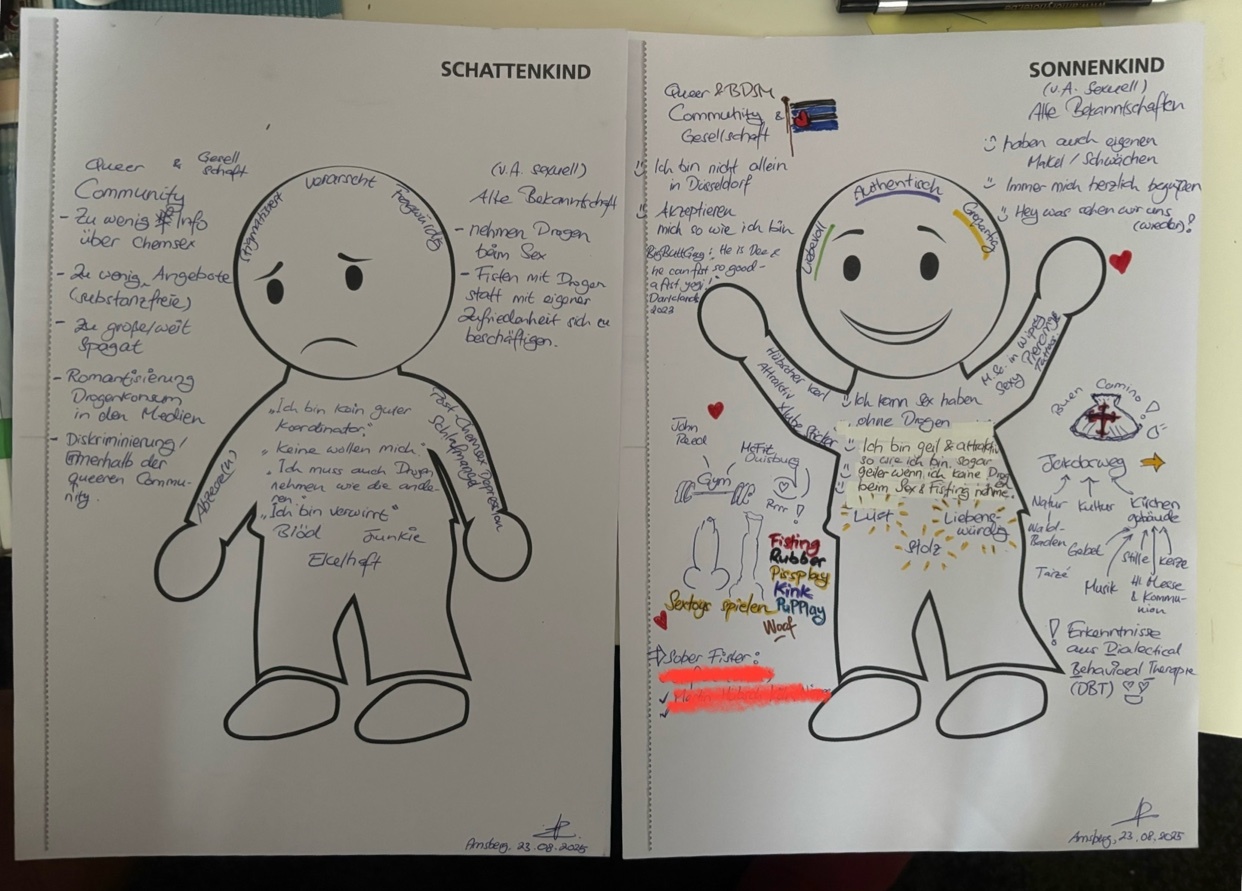 SCHATTENKIND
Queer & Gesell
schaft
Community
- Zu wenig Info
über Chemsex
- Zu wenig Angebote
(substanzfreie)
- Zu große/weit
Spagat
- Romantisierung
Drogenkonsum
in den Medien
- Diskriminierung/
innerhalb der
queeren Commu-
nity.
stigmatisiert
verarscht
Fragwürdig
(v.A. sexuell)
Alte Bekanntschaft
- nehmen Drogen
beim Sex
- Fisten mit Drogen
statt mit eigener
Zufriedenheit sich zu
beschäftigen.
"Ich bin kein guter
Koordinator."
"Keine wollen mich"
"Ich muss auch Drogen
nehmen wie die ande-
ren"
"Ich bin verwirrt"
Blöd Junkie
Ekelhaft
Post Chemsex Depression
Schlafmangel
Arnsberg, 23.08.2025
SONNENKIND
Queer & BDSM
Community &
Gesellschaft
Ich bin nicht allein
in Düsseldorf
Akzeptieren
mich so wie ich bin
BigButtGreg: He is Dee &
he can fist so good -
a fist yogi!
Darklands
2023
Liebevoll
Authentisch
Grossartig
(v.A. sexuell)
Alte Bekanntschaften
haben auch eigenen
Makel / Schwächen
Immer mich herzlich begrüßen
Hey was sehen wir uns
(wieder)?
Hübscher Kerl
Attraktiv
M.Sc. in WiPsy
Sexy Piercings
Tattoos
Ich kann Sex haben
ohne Drogen
Ich bin geil & attraktiv
so wie ich bin. sogar
geiler wenn ich keine Drogen
beim Sex & Fisting nehme.
Lust
Liebens-
würdig
Stolz
John
Reed
McFit
Duisburg
Gym
Rrrr!
Fisting
Rubber
Pissplay
Kink
PuPPlay
Woof
Sextoys spielen
Sober Fister:
Buen Camino!
Jakobsweg
Natur Kultur Kirchen
gebäude
Wald-
Baden
Gebet
Stille Kerze
Taizé
Musik
Hl. Messe
& Kommu-
nion
! Erkenntnisse
aus Dialectical
Behavioral Therapie
(DBT)
Arnsberg, 23.08.2025